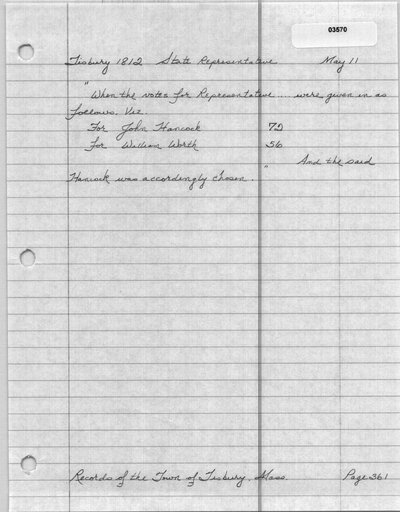 03570
Tisbury 1812 State Representative May 11
"When the votes for Representative .... were given in as
follows. Viz.
For John Hancock 72
For William Worth 56
And the said
Hancock was accordingly chosen."
Records of the Town of Tisbury, Mass. Page 361